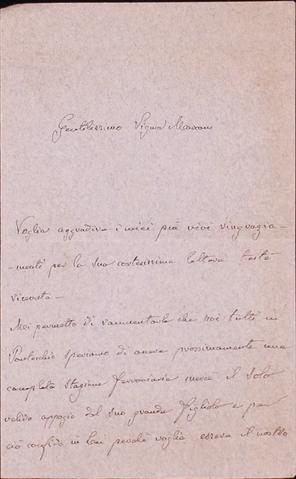 Gentilissimo Signor Marconi
Voglia aggradire i miei più vivi ringrazia-
-menti per la sua cortesissima lettera testè
ricevuta -
Mi permetto di rammentarle che noi tutti in
Pontecchio speriamo di avere prossimamente una
completa stazione ferroviaria mercè il solo
valido appogio del suo grande figliolo e per
ciò confido in lei perchè voglia essere il nostro